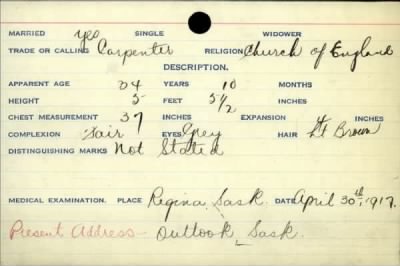 MARRIED yes SINGLE WIDOWER
TRADE OR CALLING Carpenter RELIGION Church of England
DESCRIPTION.
APPARENT AGE 34 YEARS 10 MONTHS
HEIGHT 5 FEET 5 1/2 INCHES
CHEST MEASUREMENT 37 INCHES EXPANSION 4 INCHES
COMPLEXION Fair EYES Grey HAIR Lt Brown
DISTINGUISHING MARKS Not Stated
MEDICAL EXAMINATION. PLACE Regina, Sask. DATE April 30th, 1917.
Present Address - Outlook, Sask.